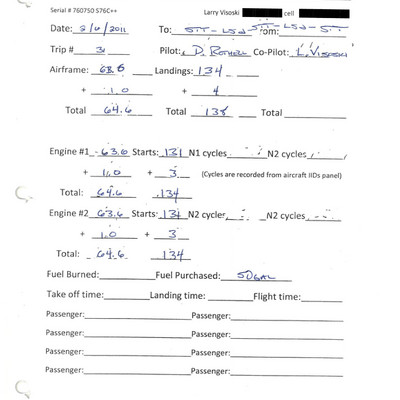 Serial # 760750 S76C++ Larry Visoski cell
Date: 2/6/2011 To: STT-LSJ-STT From:
Trip # 31 Pilot: D. Rothel Co-Pilot: L. Visoski
Airframe: 63.6 Landings: 134
+ 1.0 + 4
Total 64.6 Total 138 Total
Engine #1 63.6 Starts: 131 N1 cycles N2 cycles
+ 1.0 + 3 (Cycles are recorded from aircraft IIDs panel)
Total: 64.6 134
Engine #2 63.6 Starts: 131 N2 cycles N2 cycles
+ 1.0 + 3
Total: 64.6 134
Fuel Burned: Fuel Purchased: 50GAL
Take off time: Landing time: Flight time:
Passenger: Passenger:
Passenger: Passenger:
Passenger: Passenger:
Passenger: Passenger: